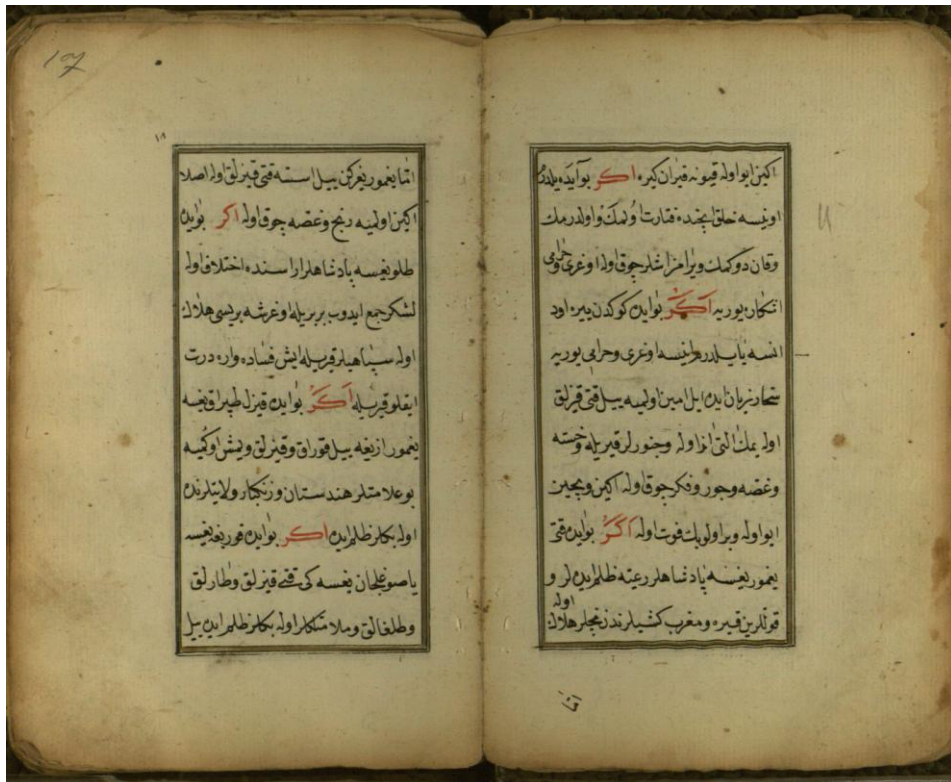 اكين ايو اوله قيونه قيران كيره اكر بو آيده يلدرم
اونيسه خلق ايچنده فتارت اولمك و اولدرمك
وقان دوكمك ويرامز ايشلر چوق اوله اوغرى وحرامى
اشكاره يوريه اكر بو ايده كوكدن ييره اود
انسه يا يلدرم اينسه اوغرى وحرامى يوريه
شحار زيان ايده ايل امين اولميه ييل قتى قزلق
اوله يمك التى اذا اوله وجنورلر قيريله وخسته
وغصه وجور وفكر چوق اوله اكين وبچين
ايو اوله وبر اولو بك فوت اوله اكر بو ايده قتى
يغمور يغسه پادشاهلر رعيته ظلم ايده لر و
قوللرين قيره ومغرب كشيلرندن نجلر هلاك اوله
امّا
١٨
امّا يغمور يغركن ييل اسسه قتى قيزلق اوله اصلا
اكين اولميه رنج وغصه چوق اوله اكر بو ايده
طلو يغسه پادشاهلر اراسنده اختلاف اوله
لشكر جمع ايدوب بر بريله اوغرشه بريسى هلاك
اوله سپاهيلر قيريله ايش فساده واره درت
ايقلو قيريله اكر بو ايده قيزل طپراق يغسه
يغمور از يغه ييل قوراق وقيزلق ويش اوكيه
بو علامتلر هندستان وزنكبار ولايتلرنده
اوله بكلر ظلم ايده اكر بو ايده قوربغه يغسه
يا صوغلجان يغسه كى قتى قيزلق وطارلق
وطلغالق وملامت اشكار اوله بكلر ظلم ايده ييل